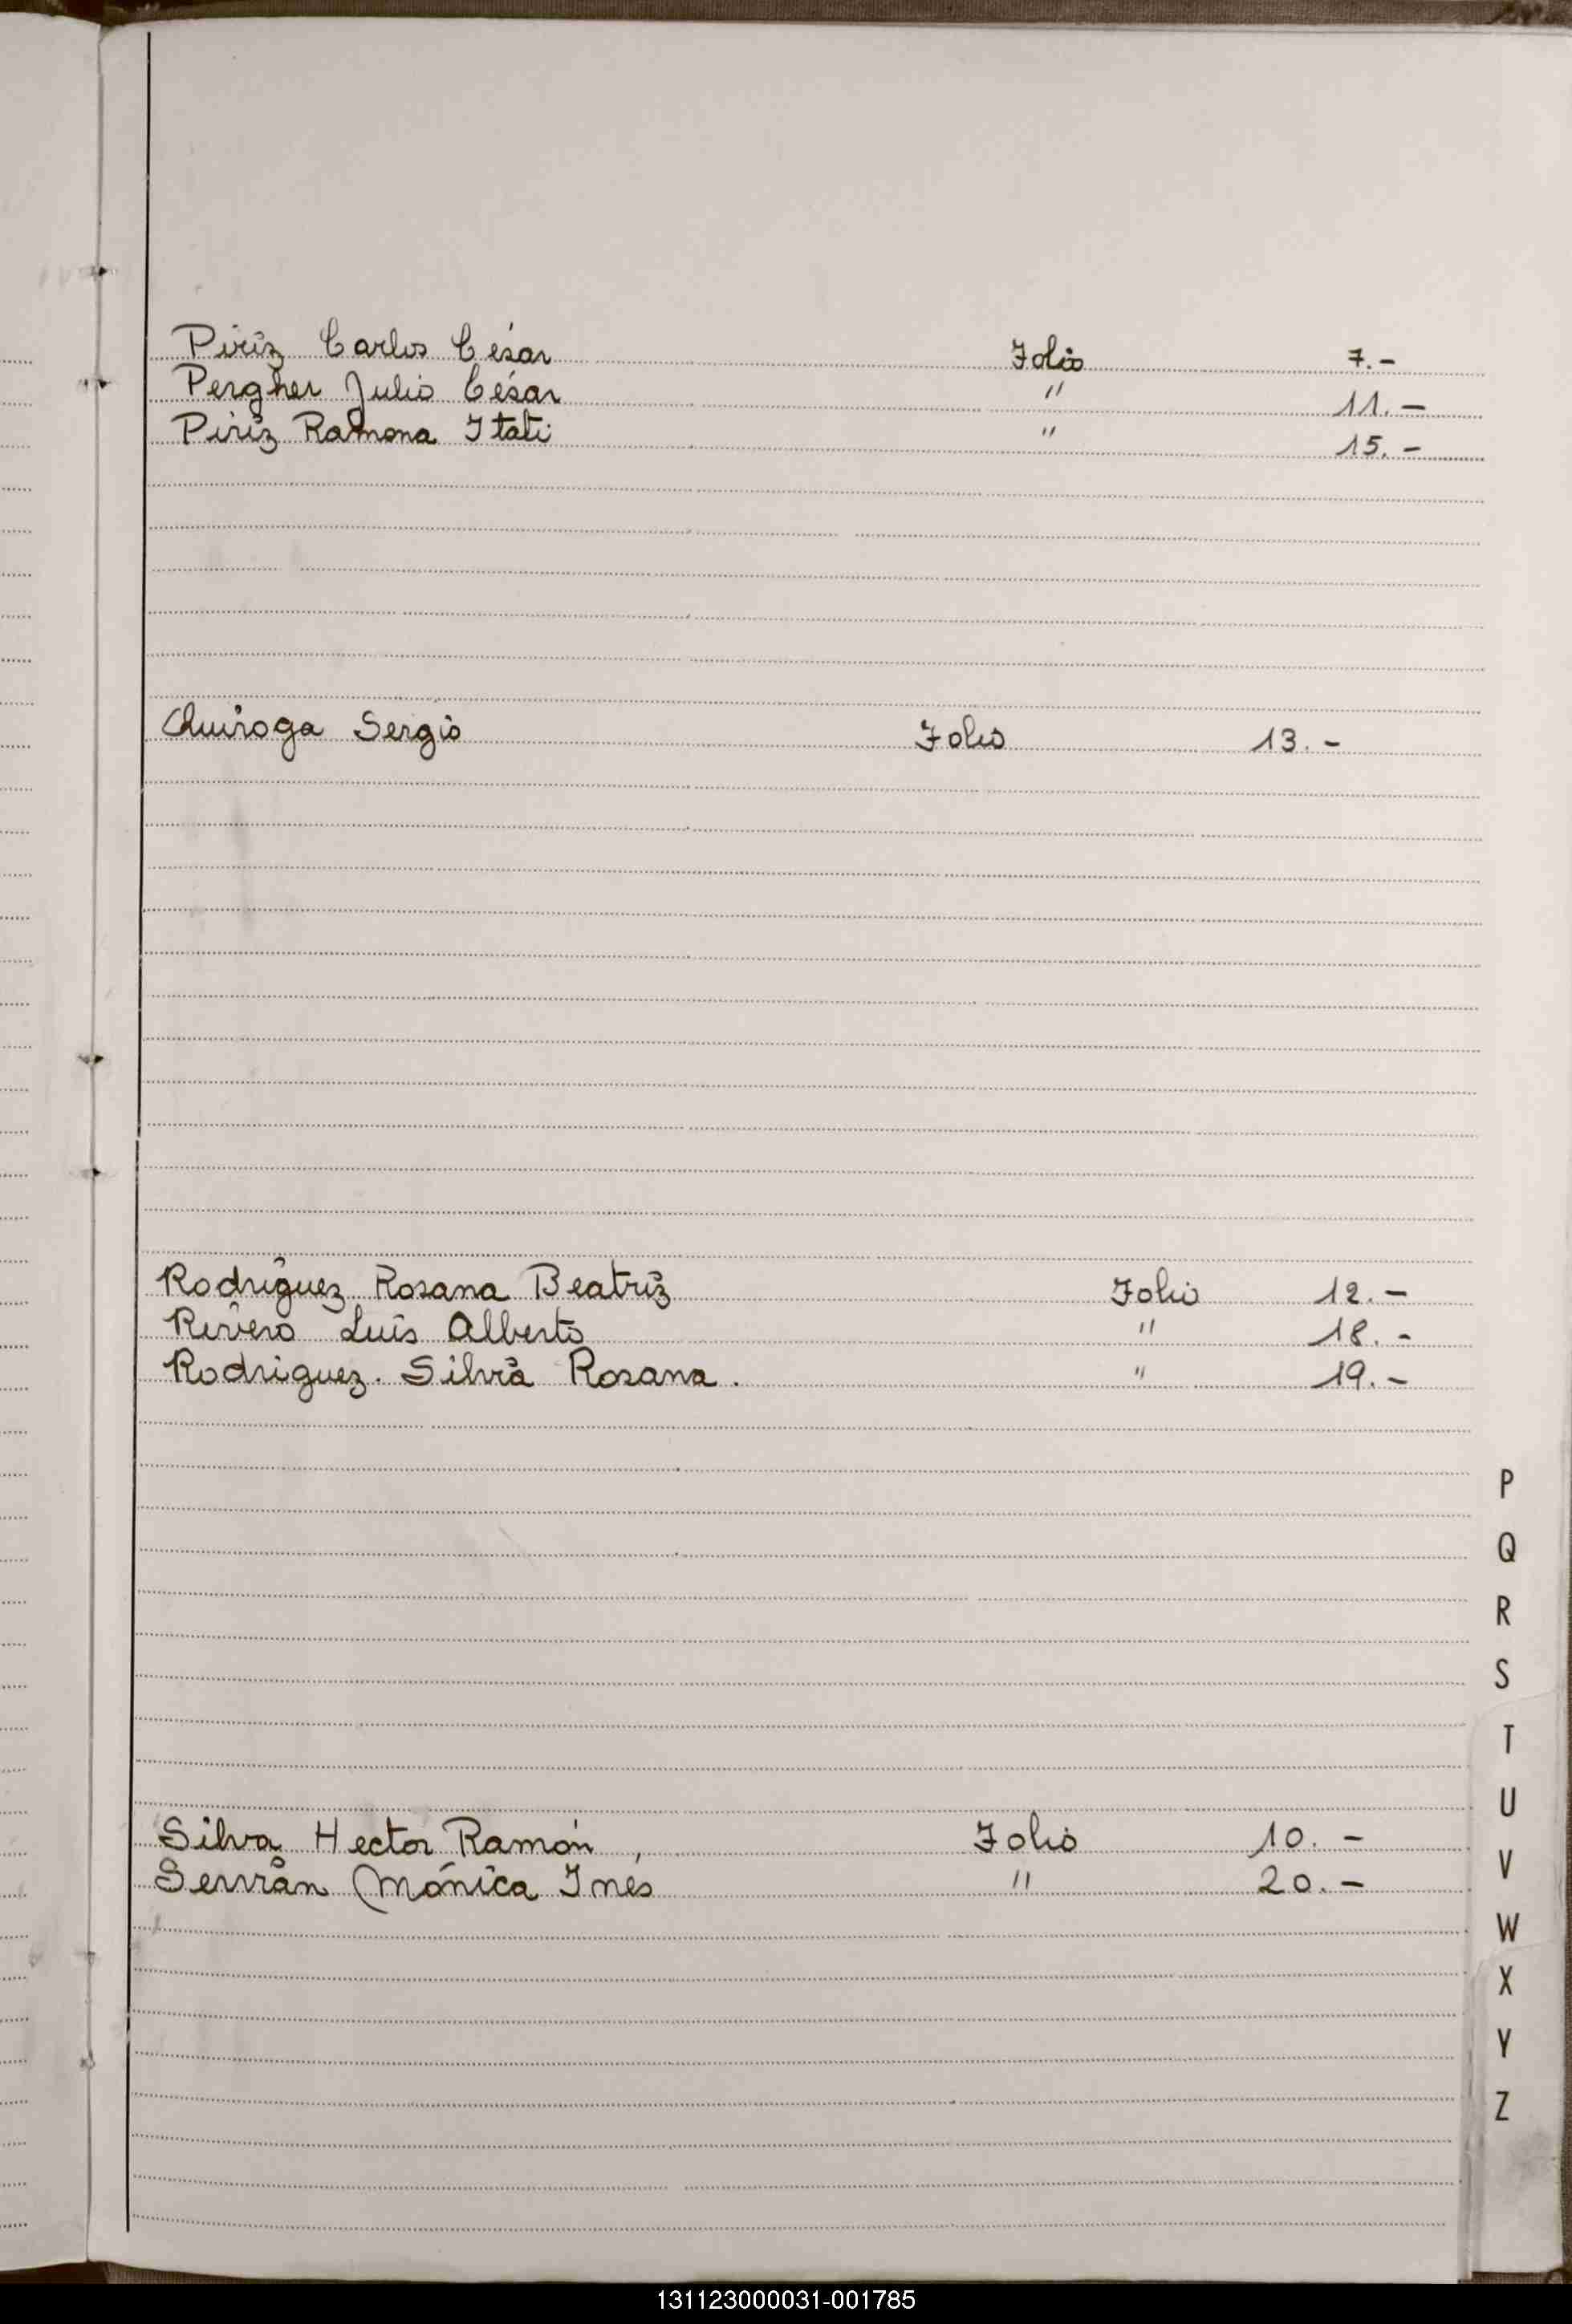 Piriz Carlos César Folio 7.-
Pergher Julio César " 11.-
Piriz Ramona Itati " 15.-
Quiroga Sergio Folio 13.-
Rodriguez Rosana Beatriz Folio 12.-
Rivero Luis Alberto " 18.-
Rodriguez. Silvia Rosana. " 19.-
P
Q
R
S
T
U
Silva Hector Ramón, Folio 10.-
V
Serran Mónica Inés " 20.-
W
X
Y
Z
131123000031-001785